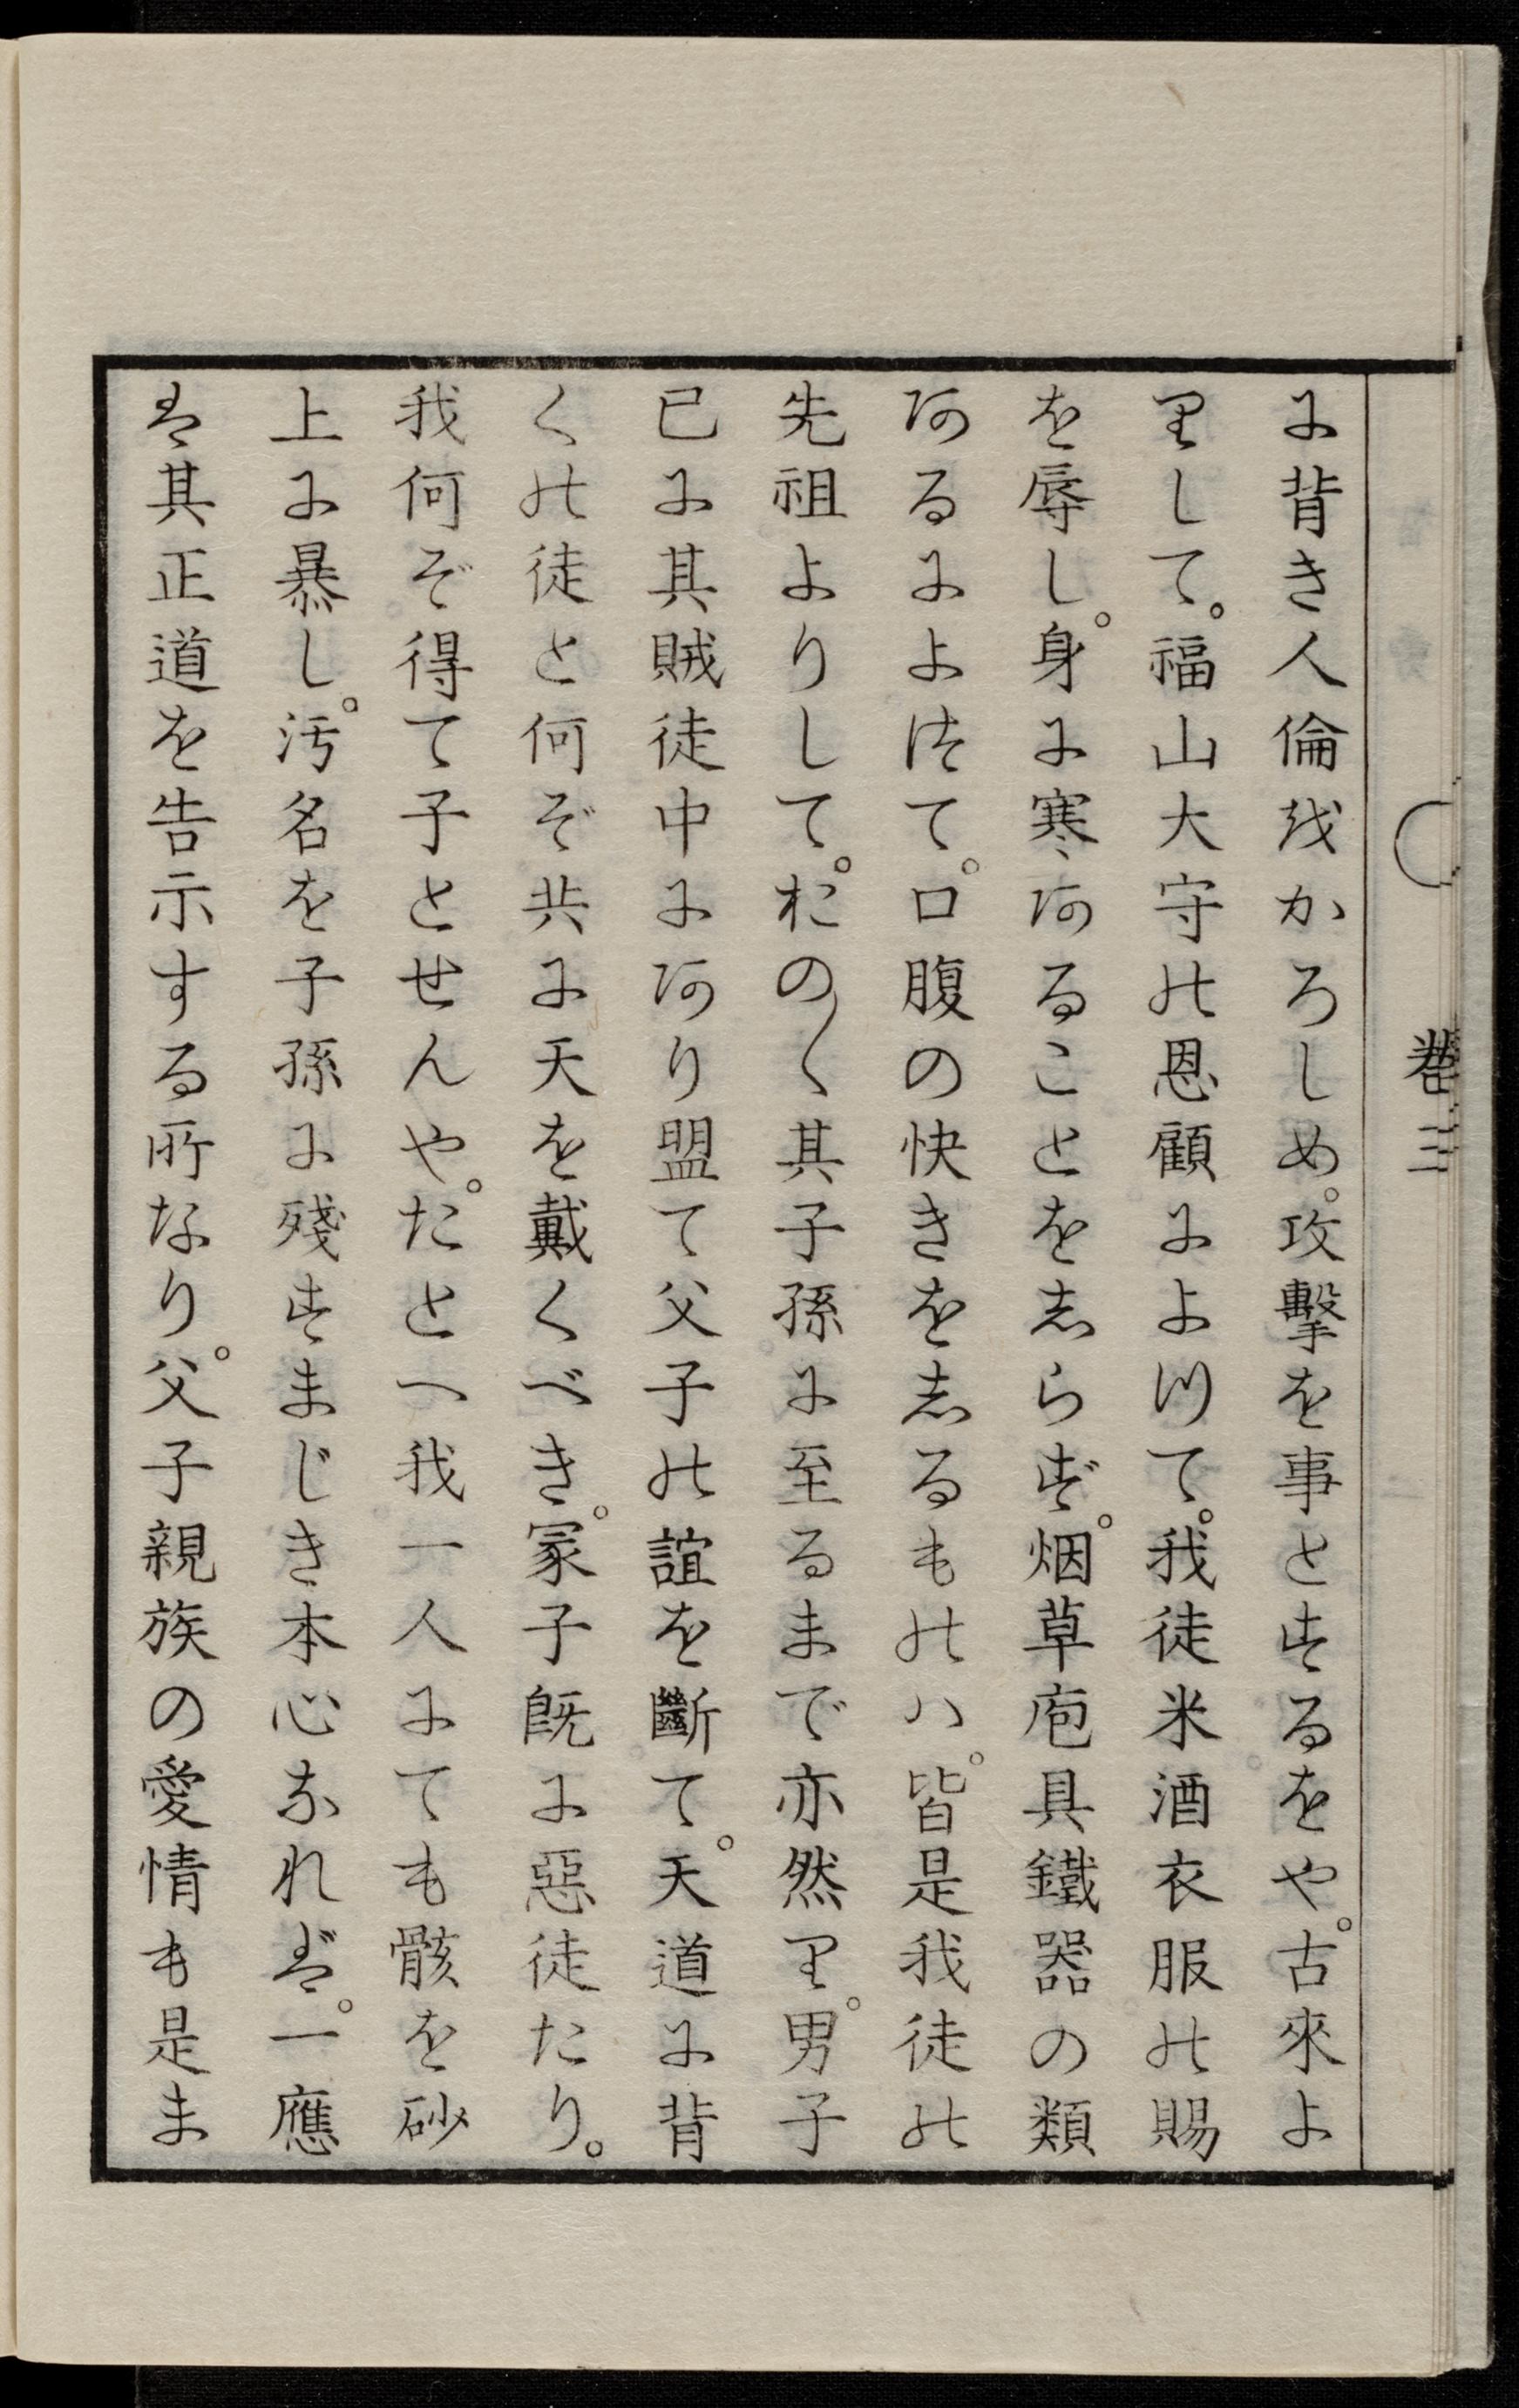 に背き人倫をかろしめ。攻擊を事とするをや。古來よ
りして。福山大守の恩顧によつて。我徒米酒衣服の賜
を辱し。身に寒あることをしらず。烟草庖具鐵器の類
あるによつて。口腹の快きをしるものハ。皆是我徒の
先祖よりして。おの〱其子孫に至るまで亦然り。男子
已に其賊徒中にあり盟て父子の誼を斷て。天道に背
くの徒と何ぞ共に天を戴くべき。冡子既に惡徒たり。
我何ぞ得て子とせんや。たとへ我一人にても骸を砂
上に暴し。汚名を子孫に殘すまじき本心なれば。一應
は其正道を告示する所なり。父子親族の愛情も是ま
卷三